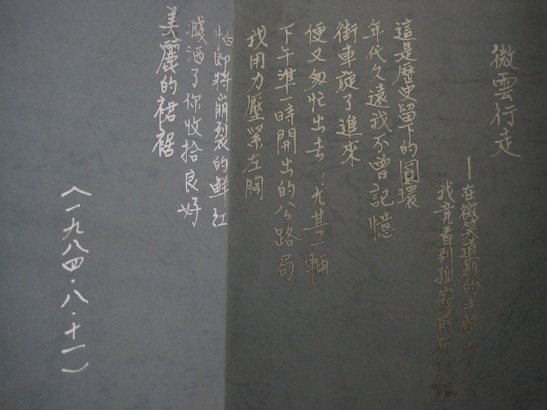 微雲行走
—在微笑道別的手勢中
我竟看到孤寂前行的
這是歷史留下的圓環
年代久遠我不曾記憶
街車旋了進來
便又匆忙出去，尤其一輛
下午準一時開出的公路局
我用力壓緊左胸
怕即將崩裂的鮮紅
濺洒了你收拾良好
美麗的裙裾
（一九八四・八・十一）